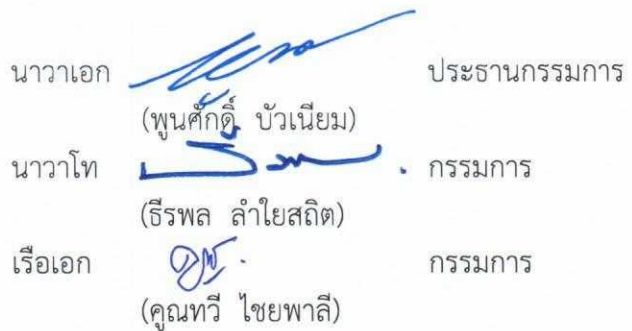 นาวาเอก ประธานกรรมการ
(พูนศักดิ์ บัวเนียม)
นาวาโท กรรมการ
(ธีรพล ลำใยสถิต)
เรือเอก กรรมการ
(คูณทวี ไชยพาลี)